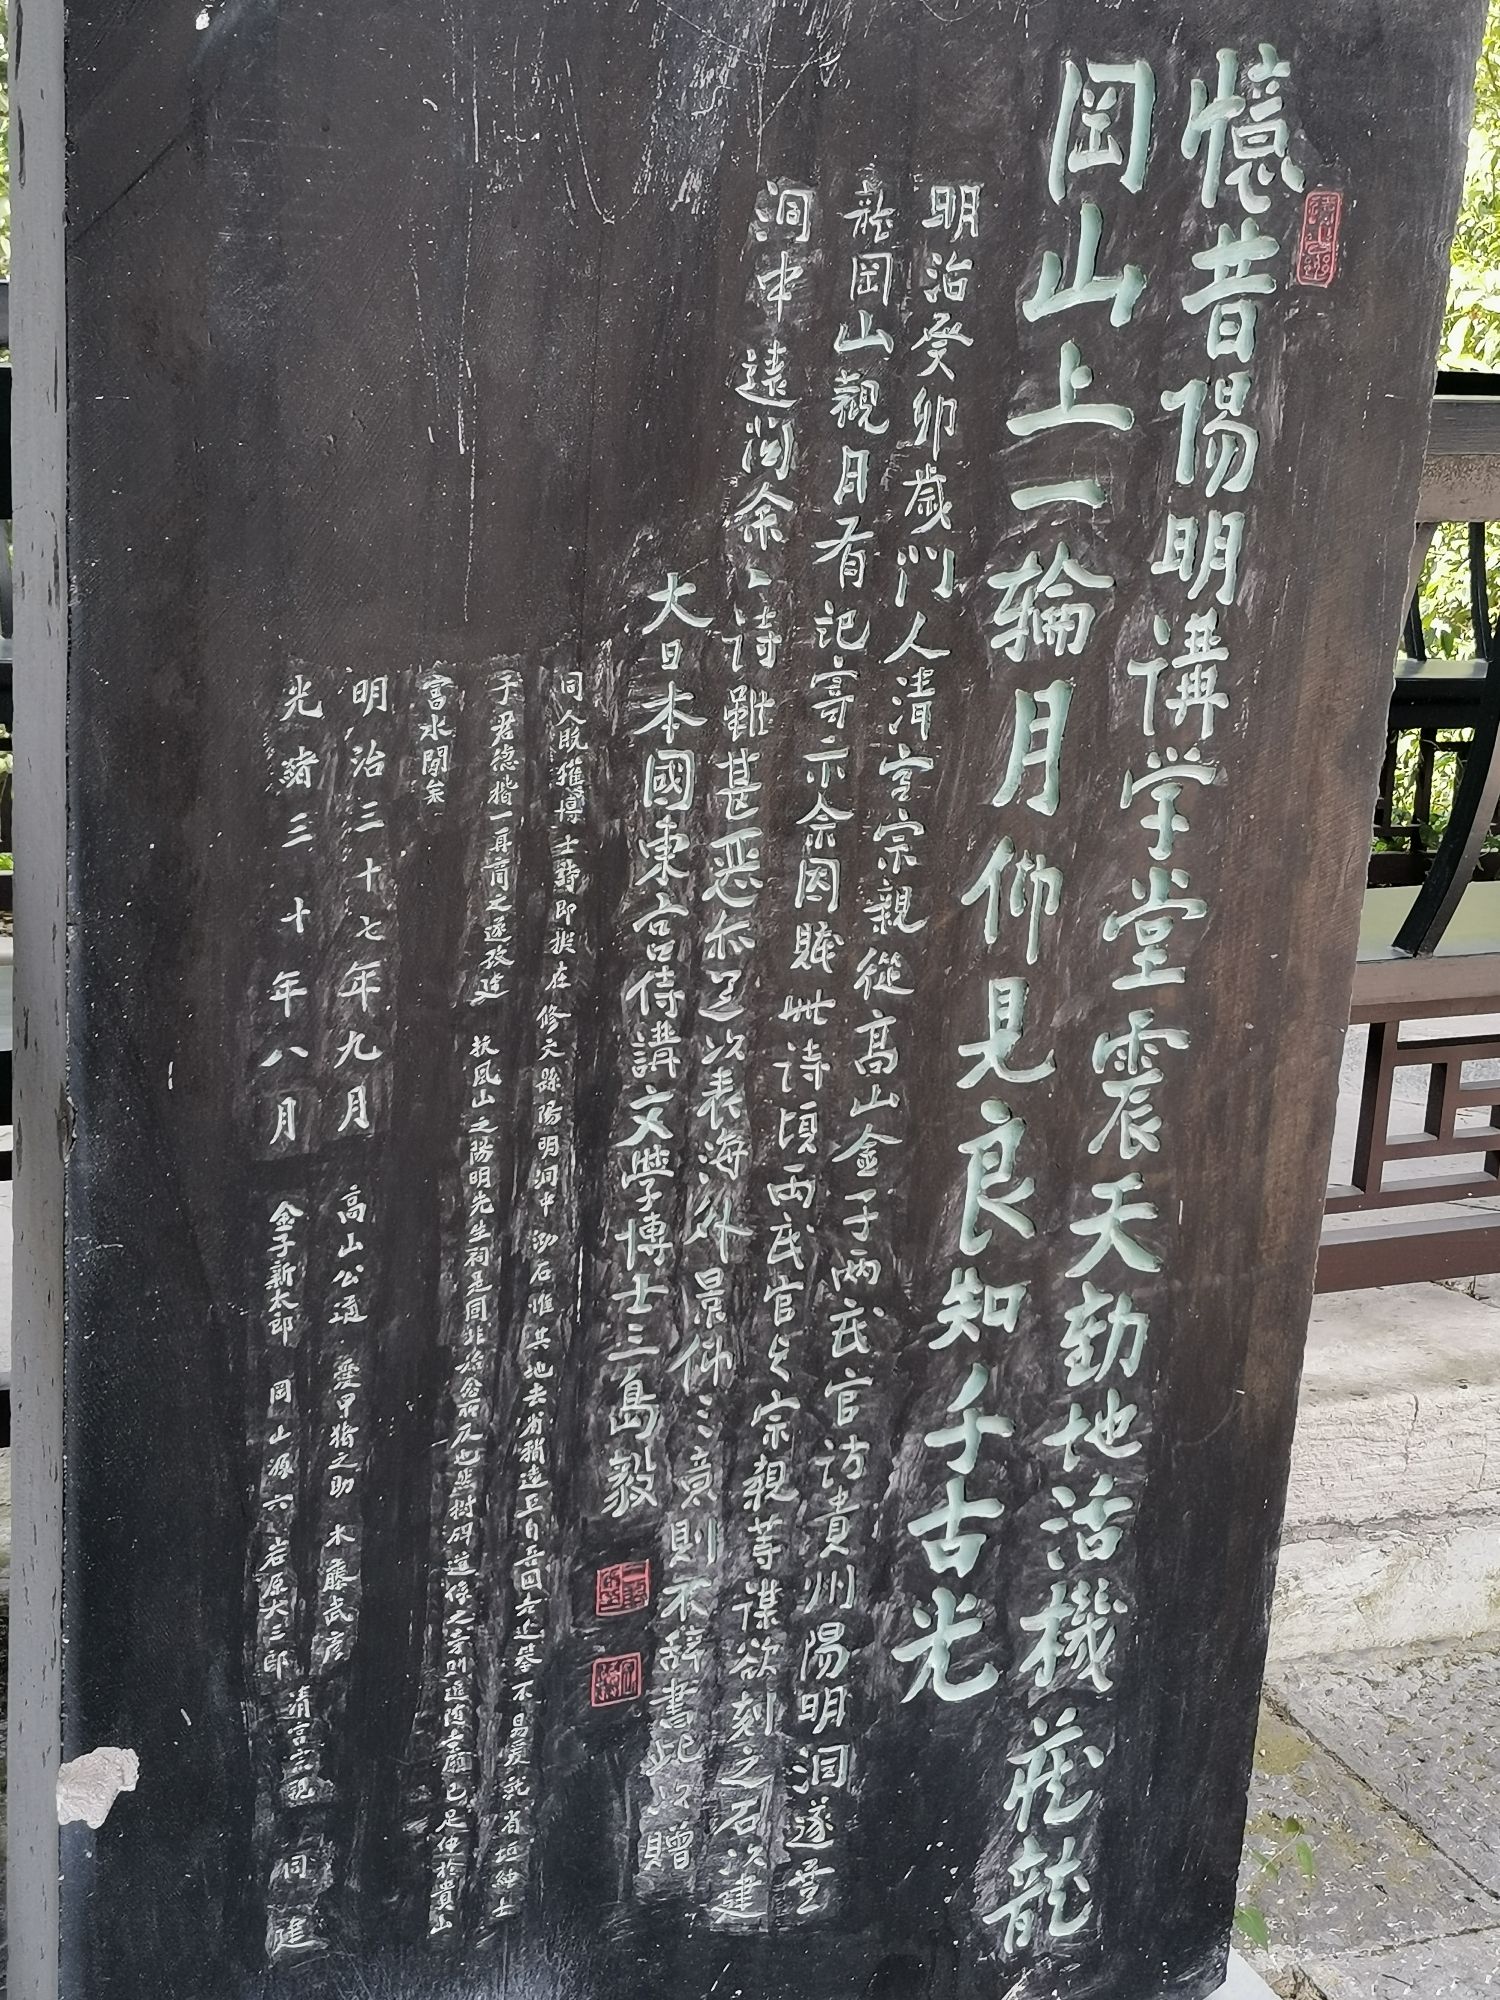 憶昔陽明講学堂震天動地活機藏龍
岡山上一輪月仰見良知千古光
明治癸卯歳門人清宮宗親從髙山金子兩武官訪貴州陽明洞遂登
龍岡山觀月有記寄示余因賦此詩頃兩武官与宗親等謀欲刻之石以建
洞中遠徵余詩雖甚惡亦足以表海外景仰之意則不辞書此以贈
大日本國東宮侍講文學博士三島毅
同人既獲博士詩即擬在修文縣陽明洞中泐石惟其地去省稍遠且自昔因老近攀不易爰就省垣紳士
于君德楷一再商之遂改建 扶風山之陽明先生祠是固非始念所及也然樹碑道傍之
富水間矣
明治三十七年九月 高山公通 愛甲猪之助 木藤武彦
光緒三十年八月 金子新太郎 岡山源六 岩原大三郎 清宮宗親 同建